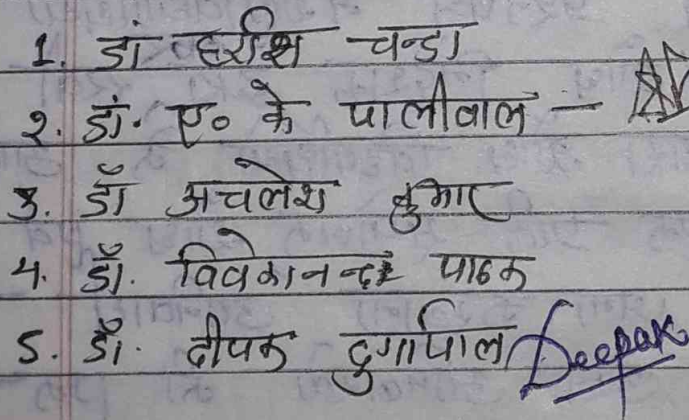 1. डां हरीश चन्डा
2. डां. ए० के पालीवाल -
3. डॉ अचलेश कुमार
4. डॉ. विवेकानन्द पाठक
5. डॉ. दीपक दुर्गापाल Deepak